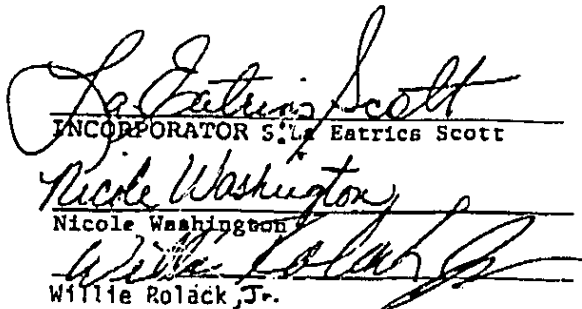 La Eatrics Scott
INCORPORATOR S. La Eatrics Scott
Nicole Washington
Nicole Washington
Willie Rolack Jr
Willie Rolack, Jr.